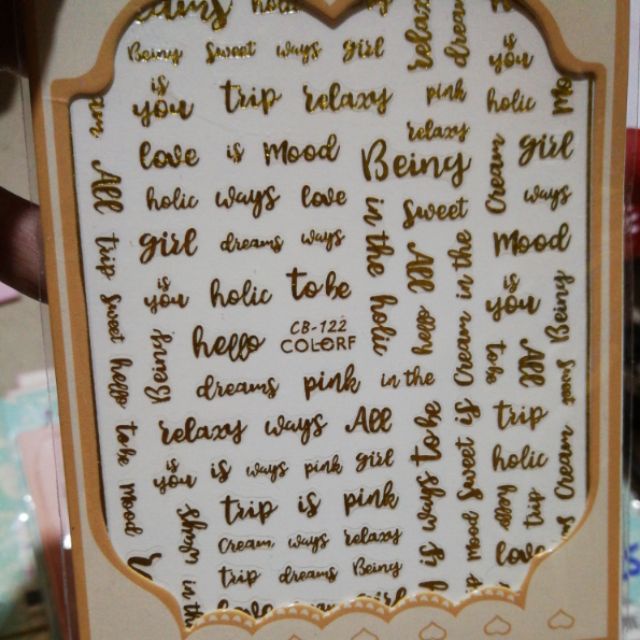 Bemy Sweet ways girl
is you trip relaxy pink holic
relaxy
love is Mood Being girl
All holic ways love Sweet Cream ways
trip girl dreams ways in the holic All in the Cream Mood
Sweet is you holic to be hello is you Being
hello CB-122
COLORF
Bemy dreams pink in the to be All Sweet
to be relaxy ways All to be is trip Cream
mood is you is ways pink girl ways Sweet holic
trip is pink is mood hello trip
Cream ways relaxy love
in the trip dreams Being
girl